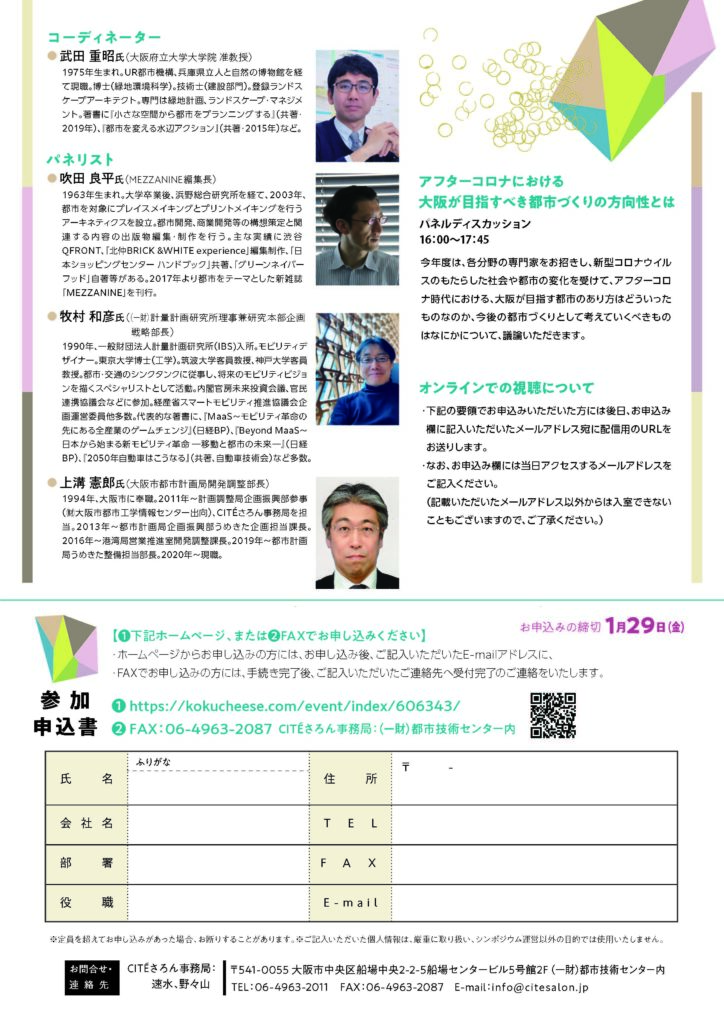 コーディネーター
武田 重昭氏(大阪府立大学大学院 准教授)
1975年生まれ。UR都市機構、兵庫県立人と自然の博物館を経
て現職。博士(緑地環境科学)。技術士(建設部門)。登録ランドス
ケープアーキテクト。専門は緑地計画、ランドスケープ・マネジメ
ント。著書に『小さな空間から都市をプランニングする』(共著・
2019年)、『都市を変える水辺アクション』(共著・2015年)など。
パネリスト
吹田 良平氏(MEZZANINE編集長)
1963年生まれ。大学卒業後、浜野総合研究所を経て、2003年、
都市を対象にプレイスメイキングとプリントメイキングを行う
アーキネティクスを設立。都市開発、商業開発等の構想策定と関
連する内容の出版物編集・制作を行う。主な実績に渋谷
QFRONT、「北仲BRICK &WHITE experience」編集制作、『日
本ショッピングセンター ハンドブック』共著、『グリーンネイバー
フッド』自著等がある。2017年より都市をテーマとした新雑誌
『MEZZANINE』を刊行。
牧村 和彦氏((一財)計量計画研究所理事兼研究本部企画
戦略部長)
1990年、一般財団法人計量計画研究所(IBS)入所。モビリティデ
ザイナー。東京大学博士(工学)。筑波大学客員教授、神戸大学客員
教授。都市・交通のシンクタンクに従事し、将来のモビリティビジョ
ンを描くスペシャリストとして活動。内閣官房未来投資会議、官民
連携協議会などに参加。経産省スマートモビリティ推進協議会企
画運営委員他多数。代表的な著書に、『MaaS~モビリティ革命の
先にある全産業のゲームチェンジ』(日経BP)、『Beyond MaaS~
日本から始まる新モビリティ革命 ―移動と都市の未来―』(日経
BP)、『2050年自動車はこうなる』(共著、自動車技術会)など多数。
上溝 憲郎氏(大阪市都市計画局開発調整部長)
1994年、大阪市に奉職。2011年~計画調整局企画振興部参事
(財大阪市都市工学情報センター出向)、CITÉさろん事務局を担
当。2013年~都市計画局企画振興部うめきた企画担当課長。
2016年~港湾局営業推進室開発調整課長。2019年~都市計画
局うめきた整備担当部長。2020年~現職。
アフターコロナにおける
大阪が目指すべき都市づくりの方向性とは
パネルディスカッション
16:00~17:45
今年度は、各分野の専門家をお招きし、新型コロナウイル
スのもたらした社会や都市の変化を受けて、アフターコロ
ナ時代における、大阪が目指す都市のあり方はどういった
ものなのか、今後の都市づくりとして考えていくべきもの
はなにかについて、議論いただきます。
オンラインでの視聴について
・下記の要領でお申込みいただいた方には後日、お申込み
欄に記入いただいたメールアドレス宛に配信用のURLを
お送りします。
・なお、お申込み欄には当日アクセスするメールアドレスを
ご記入ください。
(記載いただいたメールアドレス以外からは入室できない
こともございますので、ご了承ください。)
お申込みの締切 1月29日(金)
【❶下記ホームページ、または❷FAXでお申し込みください】
・ホームページからお申し込みの方には、お申し込み後、ご記入いただいたE-mailアドレスに、
・FAXでお申し込みの方には、手続き完了後、ご記入いただいたご連絡先へ受付完了のご連絡をいたします。
参加
申込書
❶ https://kokucheese.com/event/index/606343/
❷ FAX:06-4963-2087 CITÉさろん事務局:(一財)都市技術センター内
氏名 ふりがな 住所 〒 -
会社名 TEL
部署 FAX
役職 E-mail
※定員を超えてお申し込みがあった場合、お断りすることがあります。※ご記入いただいた個人情報は、厳重に取り扱い、シンポジウム運営以外の目的では使用いたしません。
お問合せ・
連絡先
CITÉさろん事務局:
速水、野々山
〒541-0055 大阪市中央区船場中央2-2-5船場センタービル5号館2F (一財)都市技術センター内
TEL:06-4963-2011 FAX:06-4963-2087 E-mail:info@citesalon.jp